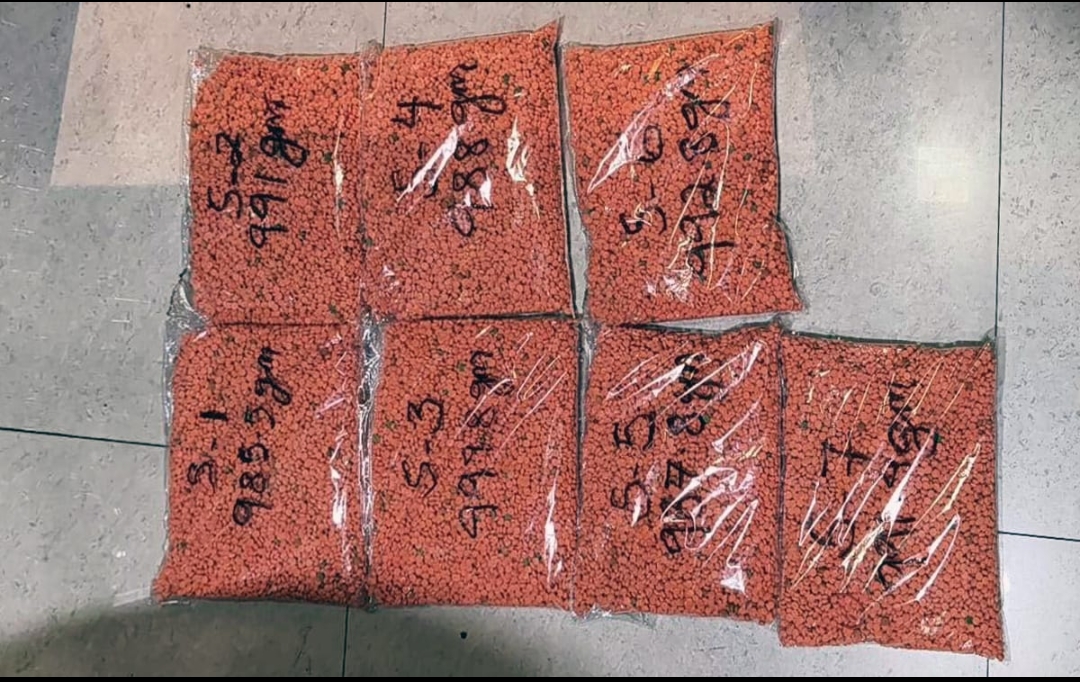 S-2
991gm
S-4
988gm
S-6
992.8gm
S-1
985.5gm
S-3
994.8gm
S-5
987.8gm